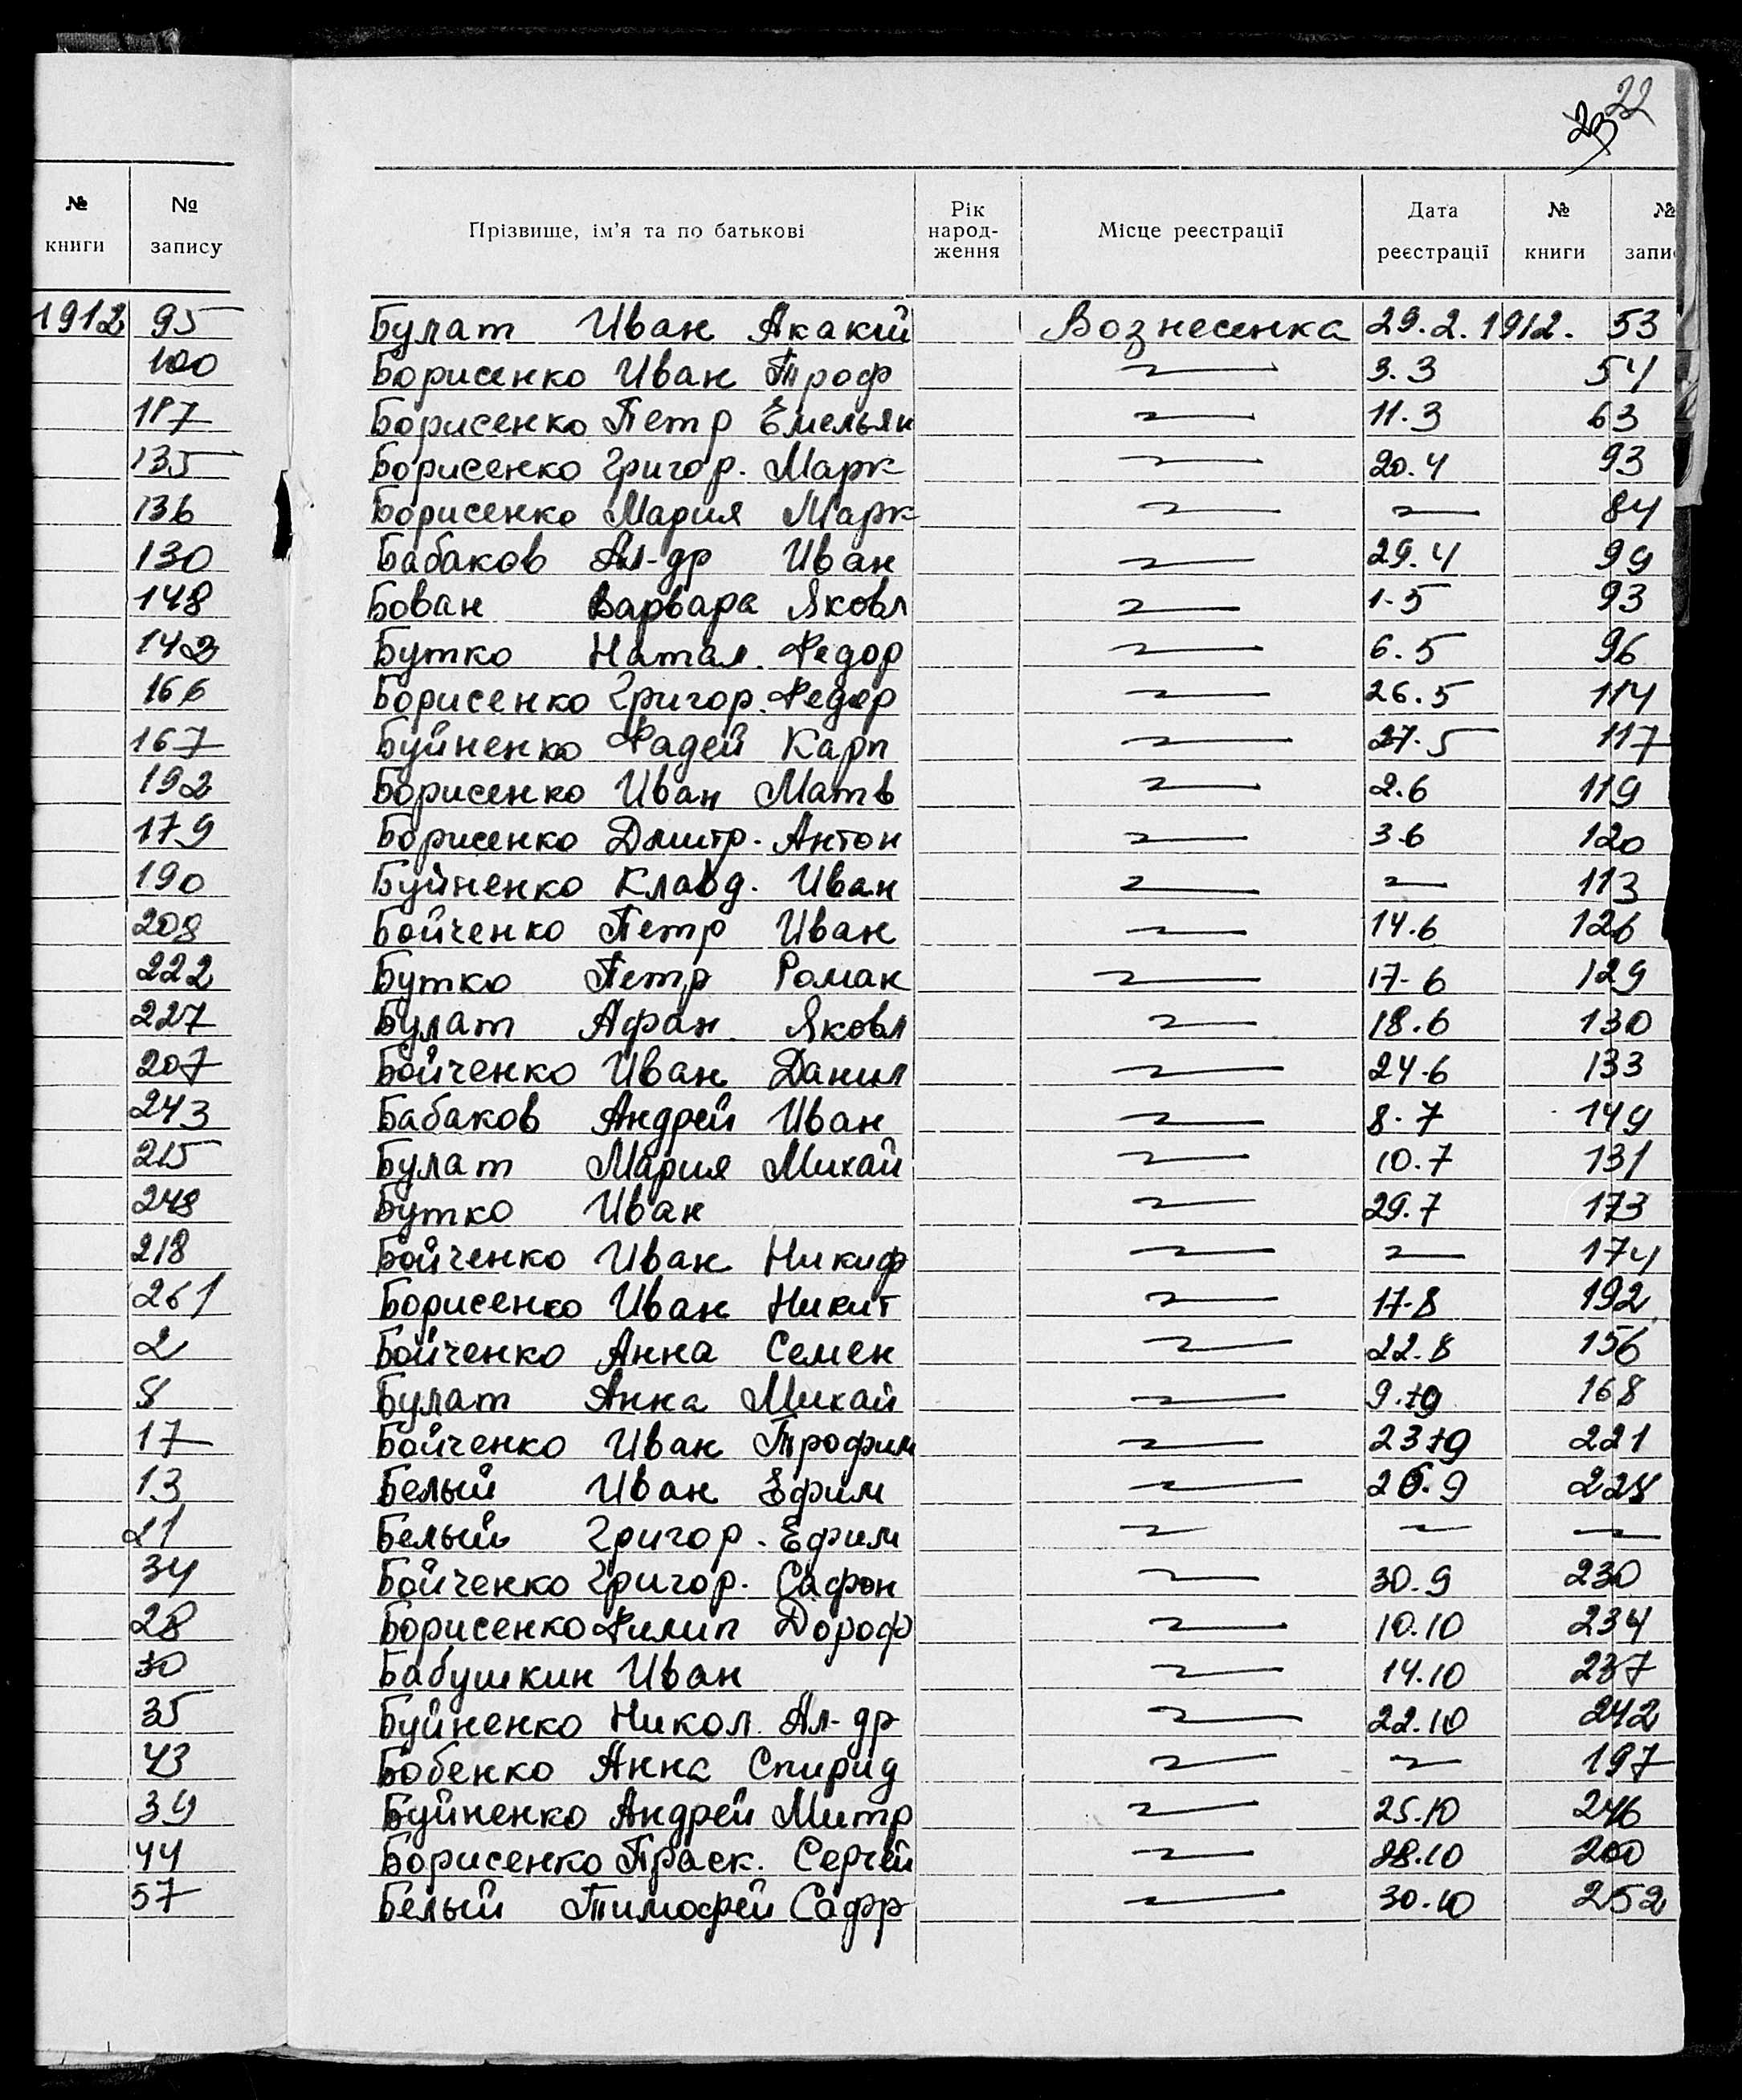 22
23
№ книги № запису
1912 95
100
187
135
136
130
148
142
166
167
192
179
190
208
222
227
207
243
215
248
218
261
2
8
17
13
21
34
28
30
35
43
39
44
57
Прізвище, ім'я та по батькові Рік народ- ження Місце реєстрації Дата реєстрації № книги № запи
Булат Иван Акакий Вознесенка 29.2.1912. 53
Борисенко Иван Троф —〃— 3.3 54
Борисенко Петр Емельян —〃— 11.3 63
Борисенко Григор. Марк —〃— 20.4 93
Борисенко Мария Марк —〃— —〃— 84
Бабаков Ал-др Иван —〃— 29.4 99
Бован Варвара Яковл —〃— 1-5 93
Бутко Натал. Федор —〃— 6.5 96
Борисенко Григор. Федор —〃— 26.5 114
Буйненко Фадей Карп —〃— 27.5 117
Борисенко Иван Матв —〃— 2.6 119
Борисенко Дмитр. Антон —〃— 3.6 120
Буйненко Клавд. Иван —〃— —〃— 113
Бойченко Петр Иван —〃— 14.6 126
Бутко Петр Роман —〃— 17-6 129
Булат Афан. Яковл —〃— 18.6 130
Бойченко Иван Данил —〃— 24.6 133
Бабаков Андрей Иван —〃— 8.7 149
Булат Мария Михай —〃— 10.7 131
Бутко Иван —〃— 29.7 173
Бойченко Иван Никиф —〃— —〃— 174
Борисенко Иван Никит —〃— 17-8 192
Бойченко Анна Семен —〃— 22.8 156
Булат Анна Михай —〃— 9.9 168
Бойченко Иван Трофим —〃— 23 9 221
Белый Иван Ефим —〃— 26.9 228
Белый Григор. Ефим —〃— —〃— —〃—
Бойченко Григор. Сафон —〃— 30.9 230
Борисенко Филип Дороф —〃— 10.10 234
Бабушкин Иван —〃— 14.10 237
Буйненко Никол. Ал-др —〃— 22.10 242
Бобенко Анна Спирид —〃— —〃— 197
Буйненко Андрей Митр —〃— 25.10 246
Борисенко Праск. Сергей —〃— 28.10 200
Белый Тимофей Сафр —〃— 30.10 252